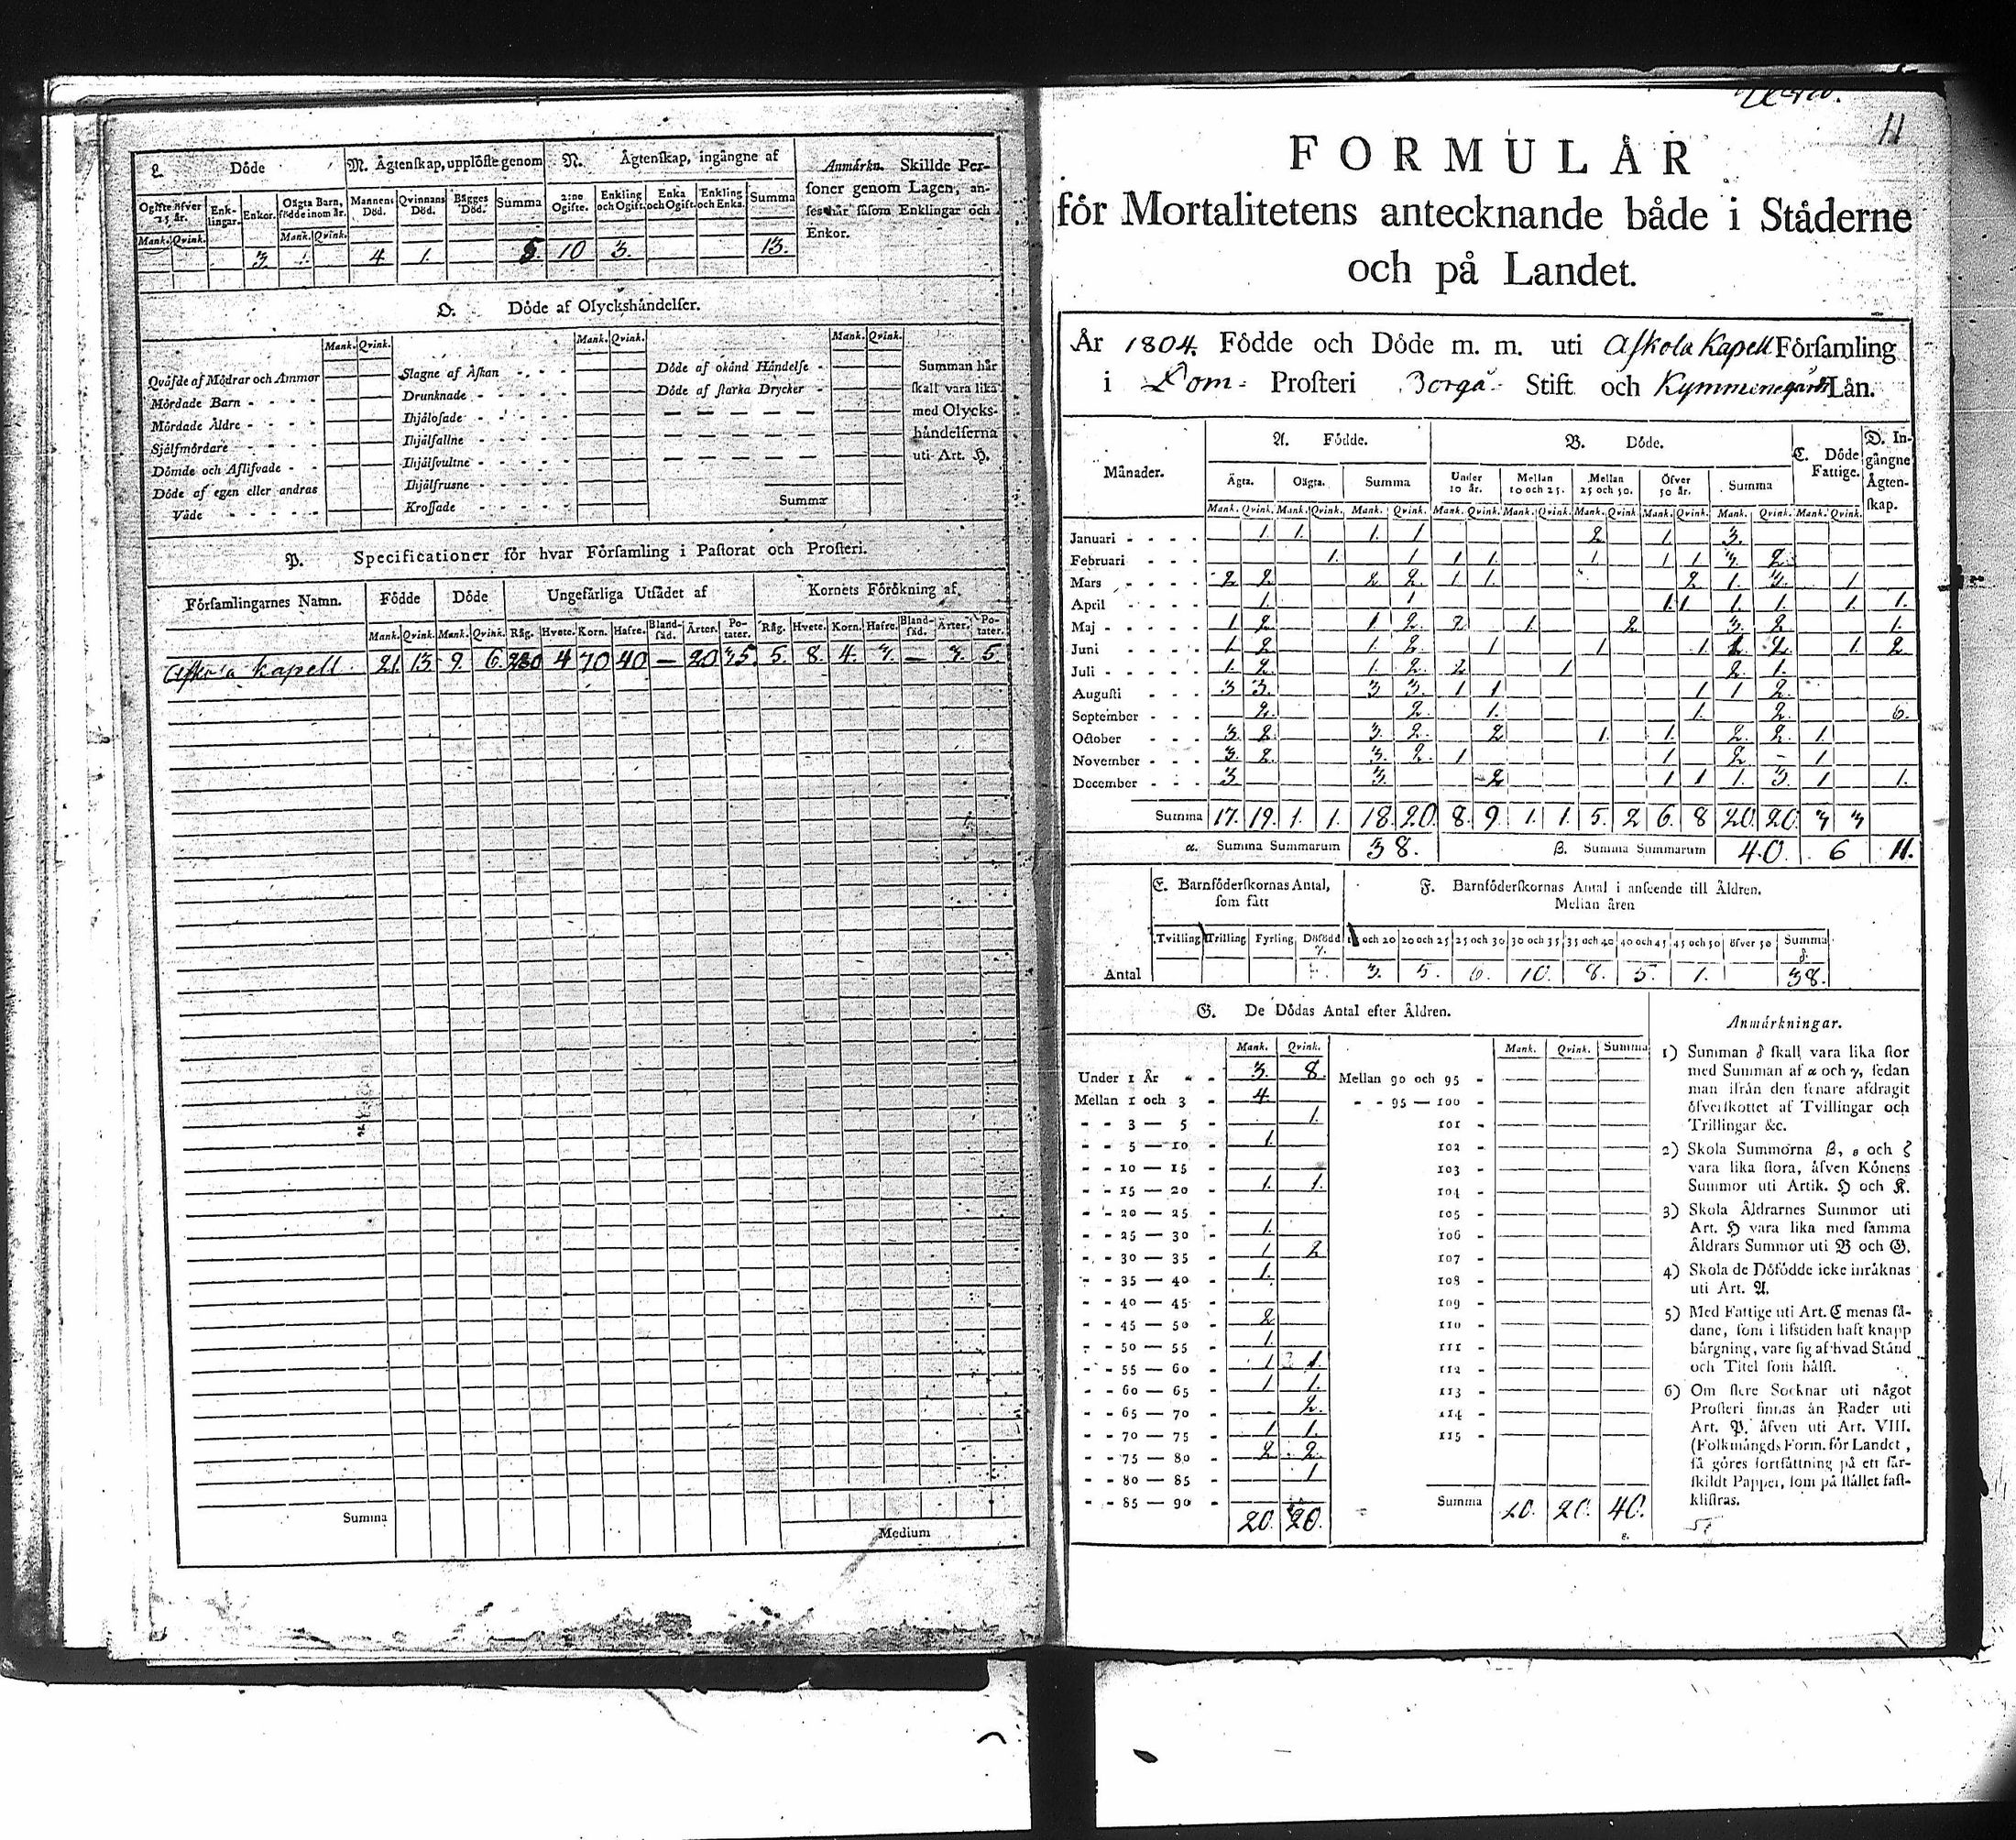 L. Döde
M. Ägtenskap, upplöste genom
N. Ägtenskap, ingångne af
Anmärkn. Skillde Per-
soner genom Lagen, an-
ses här såsom Enklingar och
Enkor.
Ogifte öfver 25 år. Enk-lingar. Enkor. Oägta Barn, födde inom år. Mannens Död. Qvinnans Död. Bägges Död. Summa 2:ne Ogifte. Enkling och Ogift. Enka och Ogift. Enkling och Enka. Summa
Mank. Qvink. Mank. Qvink.
3. 1. 4 1. 5. 10 3. 13.
O. Döde af Olyckshändelser.
Mank. Qvink. Mank. Qvink. Mank. Qvink.
Qväfde af Mödrar och Ammor
Mördade Barn - - - -
Mördade Äldre - - - -
Självmördare - - - -
Dömde och Aflifvade - -
Döde af egen eller andras
Våde - - - - -
Slagne af Åskan - - - -
Drunknade - - - - -
Ihjälosade - - - - -
Ihjälfallne - - - - -
Ihjälsvultne - - - - -
Ihjälfrusne - - - - -
Krossade - - - - -
Döde af okänd Händelse -
Döde af starka Drycker -
Summa
Summan här
skall vara lika
med Olycks-
händelserna
uti Art. H.
P. Specificationer för hvar Församling i Pastorat och Prosteri.
Församlingarnes Namn. Födde Döde Ungefärliga Utsädet af Kornets Förökning af
Mank. Qvink. Mank. Qvink. Råg. Hvete. Korn. Hafre. Bland-säd. Ärter. Po-tater. Råg. Hvete. Korn. Hafre. Bland-säd. Ärter. Po-tater.
Askola Kapell 21. 13 9 6. 280 4 70 40 — 20 35 5. 8. 4. 3. — 3. 5.
Summa
Medium
11
FORMULÄR
för Mortalitetens antecknande både i Städerne
och på Landet.
År 1804. Födde och Döde m. m. uti Askola Kapell Församling
i Dom- Prosteri Borgå Stift och Kymmenegårds Län.
Månader. A. Födde. B. Döde. C. Döde Fattige. D. In-gångne Ägten-skap.
Ägta. Oägta. Summa Under 10 år. Mellan 10 och 25. Mellan 25 och 50. Öfver 50 år. Summa
Mank. Qvink. Mank. Qvink. Mank. Qvink. Mank. Qvink. Mank. Qvink. Mank. Qvink. Mank. Qvink. Mank. Qvink. Mank. Qvink.
Januari - - - - 1. 1. 1. 1 2. 1. 3.
Februari - - - 1. 1 1 1. 1. 1 1 3. 2.
Mars - - - - 2 2. 2 2. 1 1 2. 1. 3. 1.
April - - - - 1. 1 1. 1 1. 1. 1. 1.
Maj - - - - - 1 2. 1. 2. 2. 1. 2 3. 2. 1.
Juni - - - - 1 2. 1. 2. 1 1 1 1. 2. 1. 2
Juli - - - - - 1. 2. 1. 2 2. 1 2. 1.
Augusti - - - 3 3. 3 3. 1 1 1 1 2.
September - - - 2. 2. 1. 1. 2. 6.
October - - - 3. 2. 3. 2. 2 1. 1. 2. 2. 1.
November - - - 3. 2. 3. 2. 1 1 2. - 1
December - - - 3 3. 2 1 1 1. 3. 1 1.
Summa 17. 19. 1. 1. 18. 20. 8. 9. 1. 1. 5. 2 6. 8 20. 20. 3 3
α. Summa Summarum 38. β. Summa Summarum 40. 6 11.
E. Barnföderskornas Antal, som fått
F. Barnföderskornas Antal i anseende till Åldren.
Mellan åren
Tvilling Trilling Fyrling Dödfödd γ. och 20 20 och 25 25 och 30 30 och 35 35 och 40 40 och 45 45 och 50 öfver 50 Summa δ.
Antal 3. 5. 6. 10. 8. 5. 1. 38.
G. De Dödas Antal efter Åldren.
Mank. Qvink. Mank. Qvink. Summa
Under 1 År - - 3. 8. Mellan 90 och 95 -
Mellan 1 och 3 - 4. - - 95 — 100 -
- - 3 — 5 - 1. 101 -
- - 5 — 10 - 1. 102 -
- - 10 — 15 - 103 -
- - 15 — 20 - 1. 1. 104 -
- - 20 — 25 - 105 -
- - 25 — 30 - 1. 106 -
- - 30 — 35 - 1 2 107 -
- - 35 — 40 - 1. 108 -
- - 40 — 45 - 109 -
- - 45 — 50 - 2. 110 -
- - 50 — 55 - 1. 111 -
- - 55 — 60 - 1 1. 112 -
- - 60 — 65 - 1 1. 113 -
- - 65 — 70 - 2. 114 -
- - 70 — 75 - 1 1. 115 -
- - 75 — 80 - 2 2.
- - 80 — 85 - 1
- - 85 — 90 -
20. 20. Summa 20. 20. 40.
ε.
Anmärkningar.
1) Summan δ skall vara lika stor
med Summan af α och γ, sedan
man ifrån den senare afdragit
öfverskottet af Tvillingar och
Trillingar &c.
2) Skola Summorna β, ε och ζ
vara lika stora, äfven Könens
Summor uti Artik. H och K.
3) Skola Åldrarnes Summor uti
Art. H vara lika med samma
Åldrars Summor uti B och G.
4) Skola de Dödfödde icke inräknas
uti Art. A.
5) Med Fattige uti Art. C menas så-
dane, som i lifstiden haft knapp
bärgning, vare sig af hvad Stånd
och Titel som hälst.
6) Om flere Socknar uti något
Prosteri finnas än Rader uti
Art. P. äfven uti Art. VIII.
(Folkmängds Form. för Landet,
så göres fortsättning på ett sär-
skildt Papper, som på stället fast-
klistras.